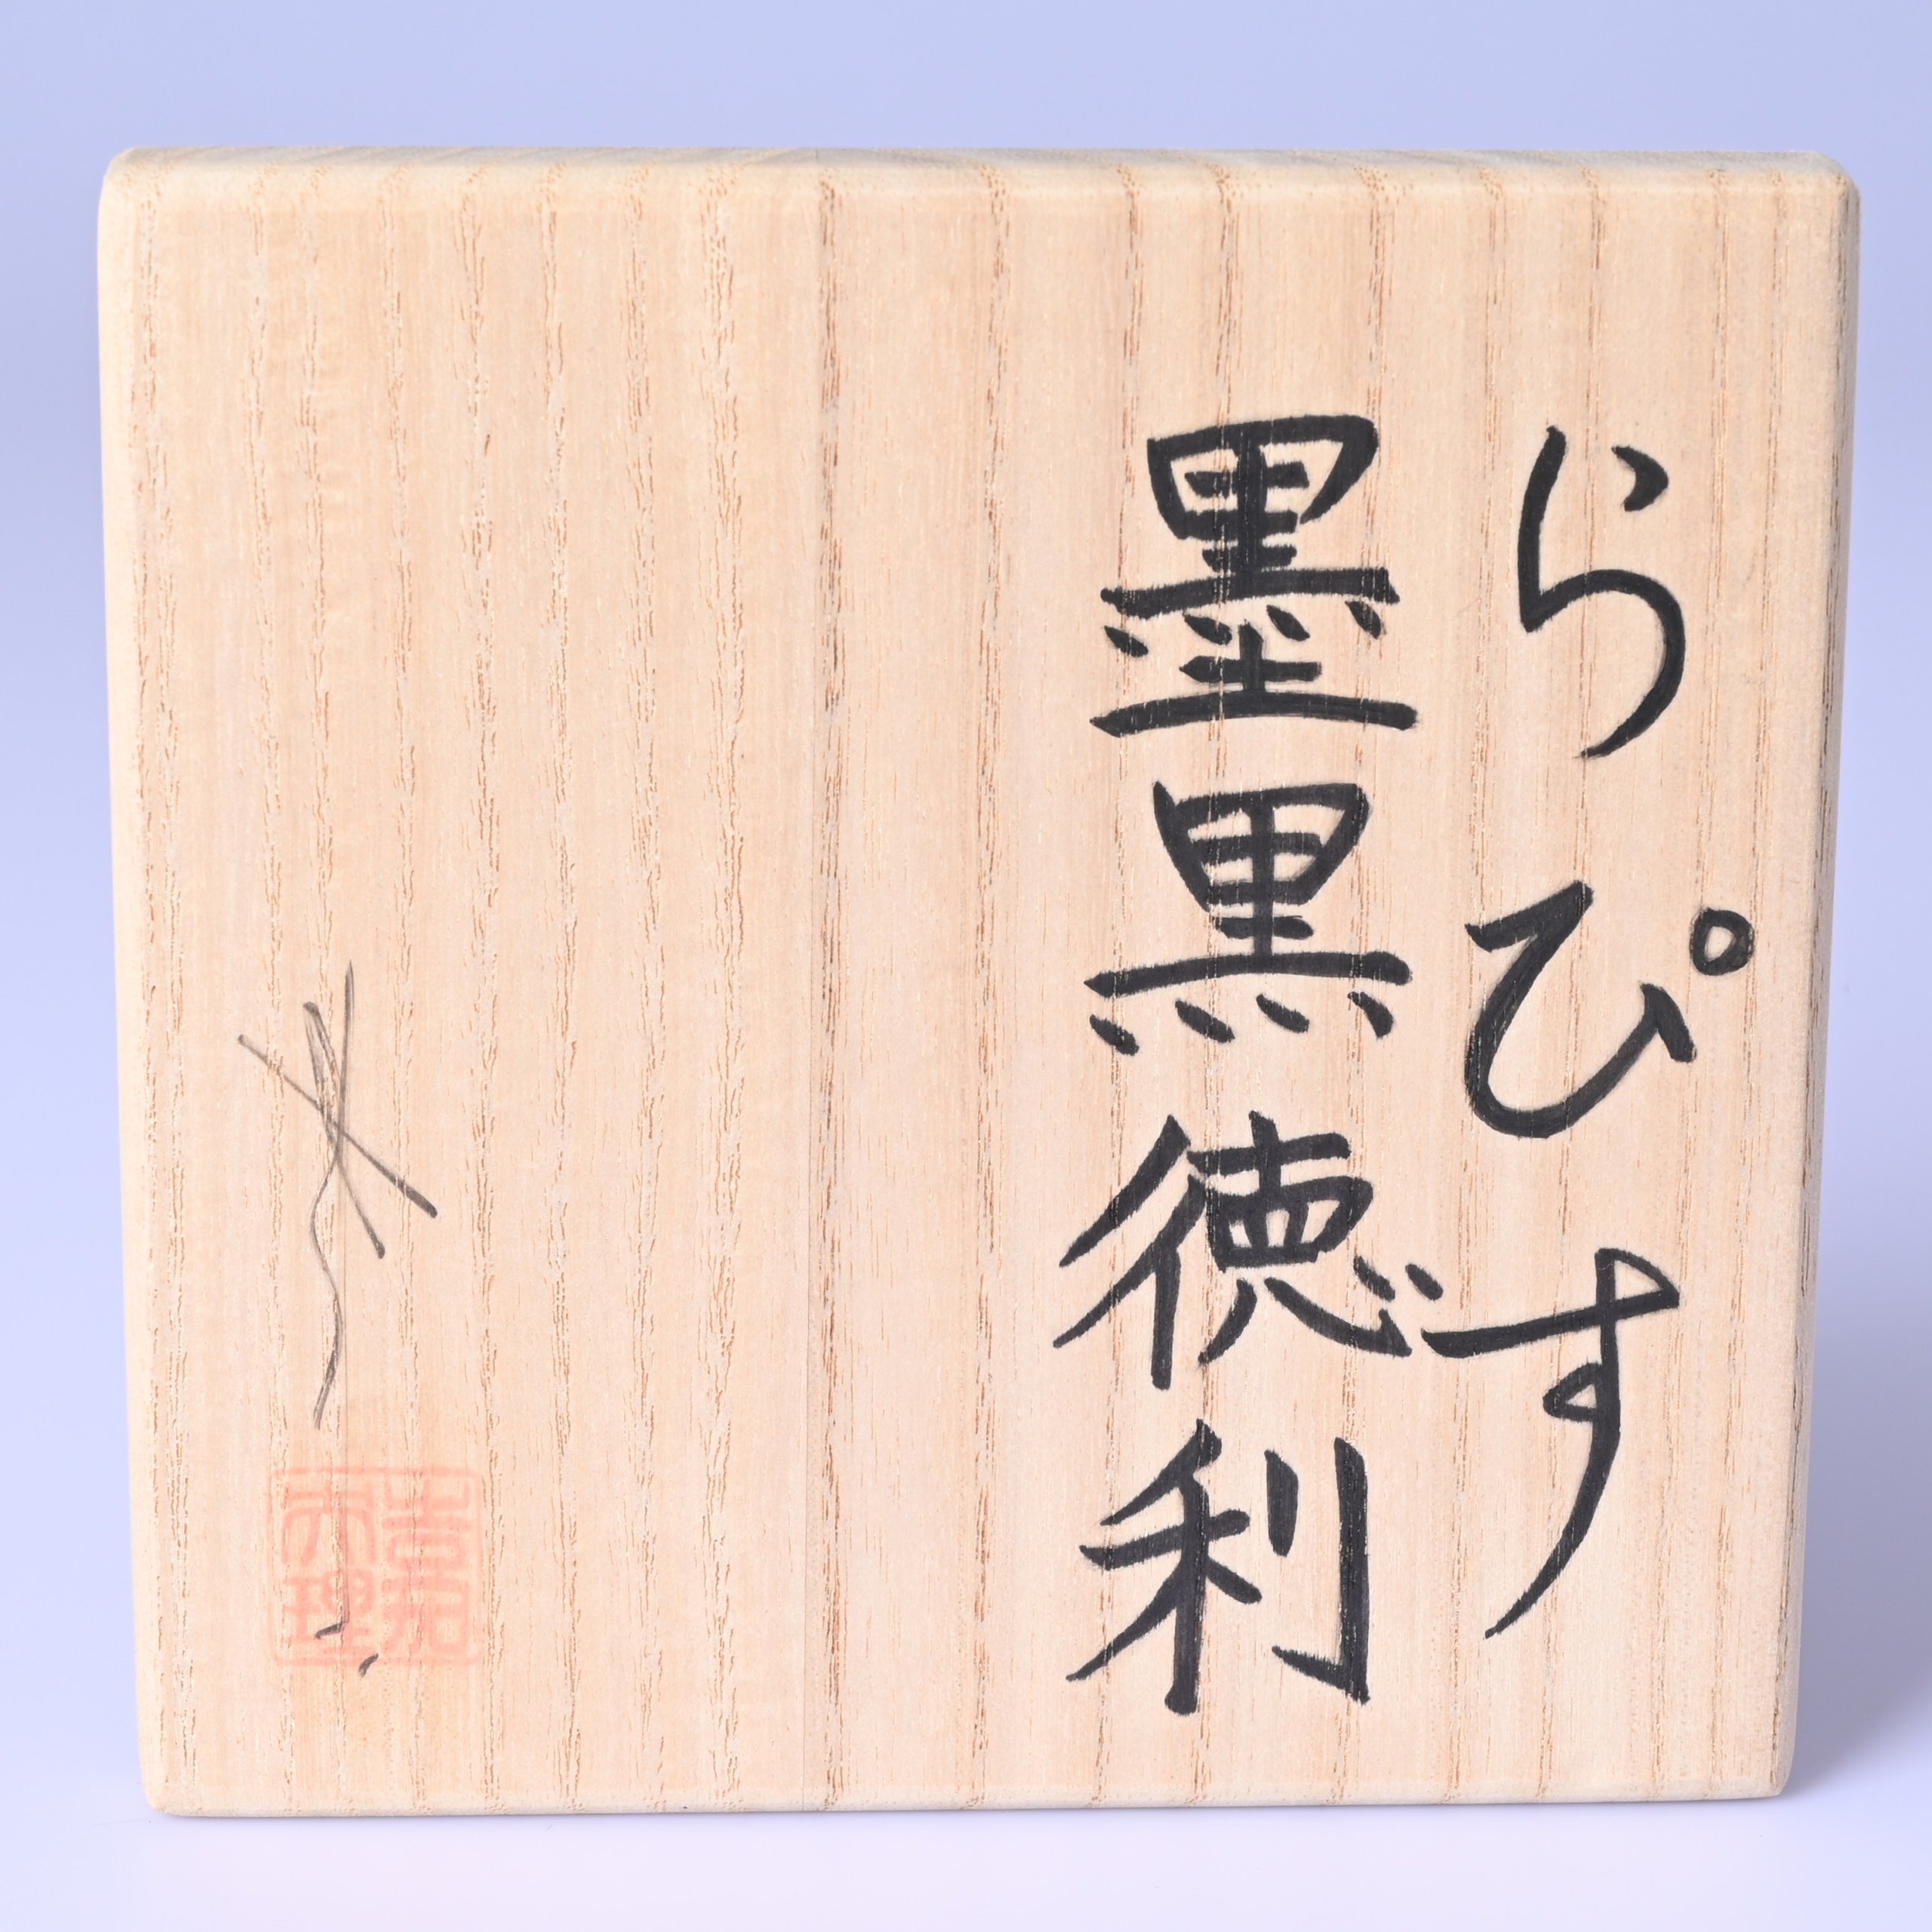 らぴす
墨黒徳利